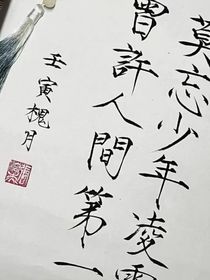 莫忘少年凌雲
曾許人間第一
壬寅槐月